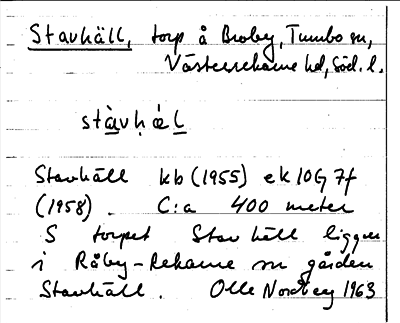 Stavhäll, torp å Broby, Tumbo sn,
Västerrekarne hd, Söd. l.
stàvḥáḷ
Stavhäll kb (1955) ek 10G 7f
(1958). C:a 400 meter
S torpet Stavhäll ligger
i Råby-Rekarne sn gården
Stavhäll. Olle Nordberg 1963